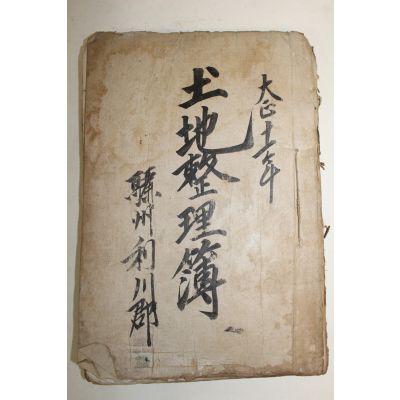 大正十一年
土地整理簿
驪州利川郡